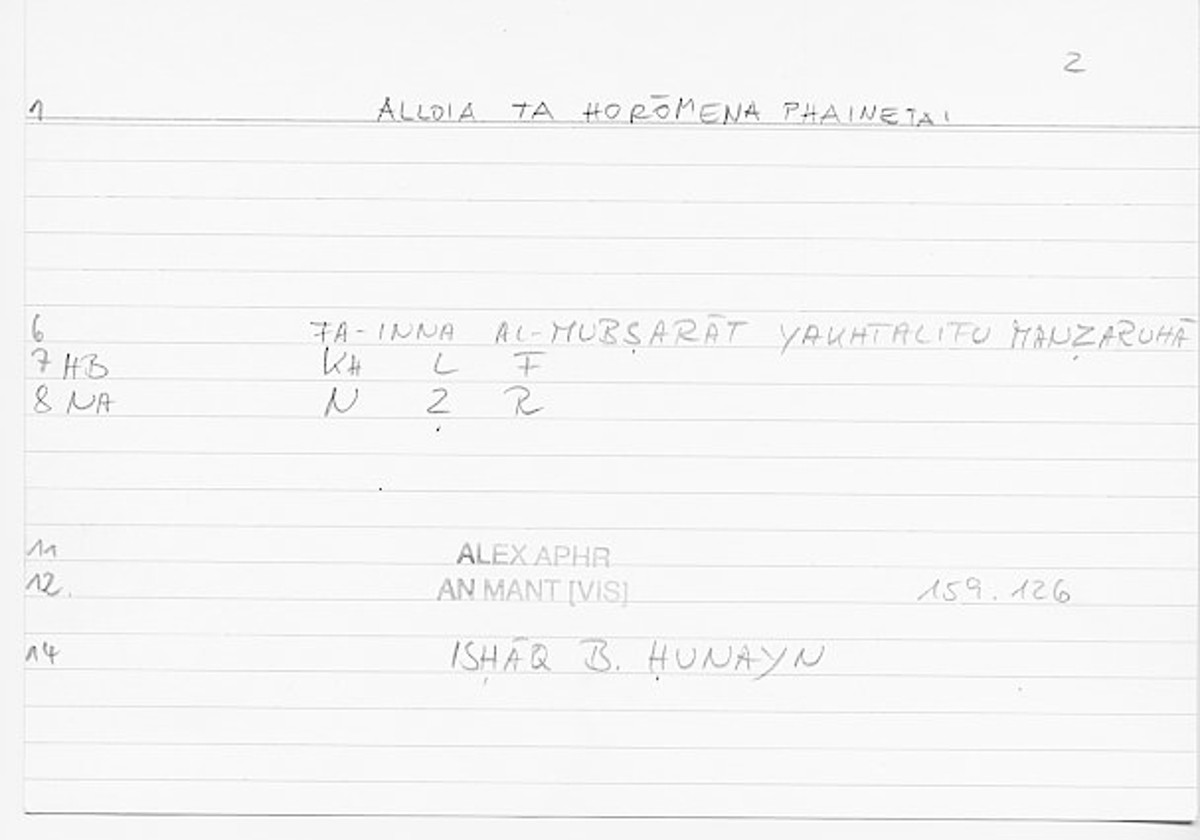 2
1 ALLOIA TA HORŌMENA PHAINETAI
6 FA-INNA AL-MUBṢARĀT YAKHTALIFU MANẒARUHĀ
7 HB KH L F
8 NA N Ẓ R
11 ALEX APHR
12. AN MANT [VIS] 159.126
14 ISḤĀQ B. ḤUNAYN